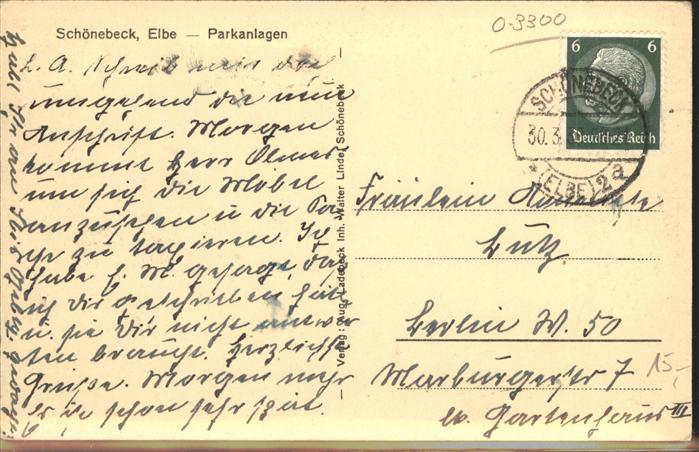 Schönebeck, Elbe — Parkanlagen
L. A. Schreib mir die
umgehend die neue
Anschrift. Morgen
kommt Herr
um sich die Möbel
anzusehen u die
zu taxieren. Ich
habe f. M. gesagt, daß
ich Dir geschrieben hab
u. sie Dir nicht antwor
ten braucht. Herzliche
Grüße. Morgen mehr
es ist schon sehr spät.
Verlag: Aug. Ladebeck Inh. Walter Linde, Schönebeck
0-3300
6 6
Deutsches Reich
SCHÖNEBECK
30.3.
* (ELBE) 2a
Fräulein Annerete
Lutz
Berlin W. 50
Marburgerstr 7
Gartenhaus III
15,-